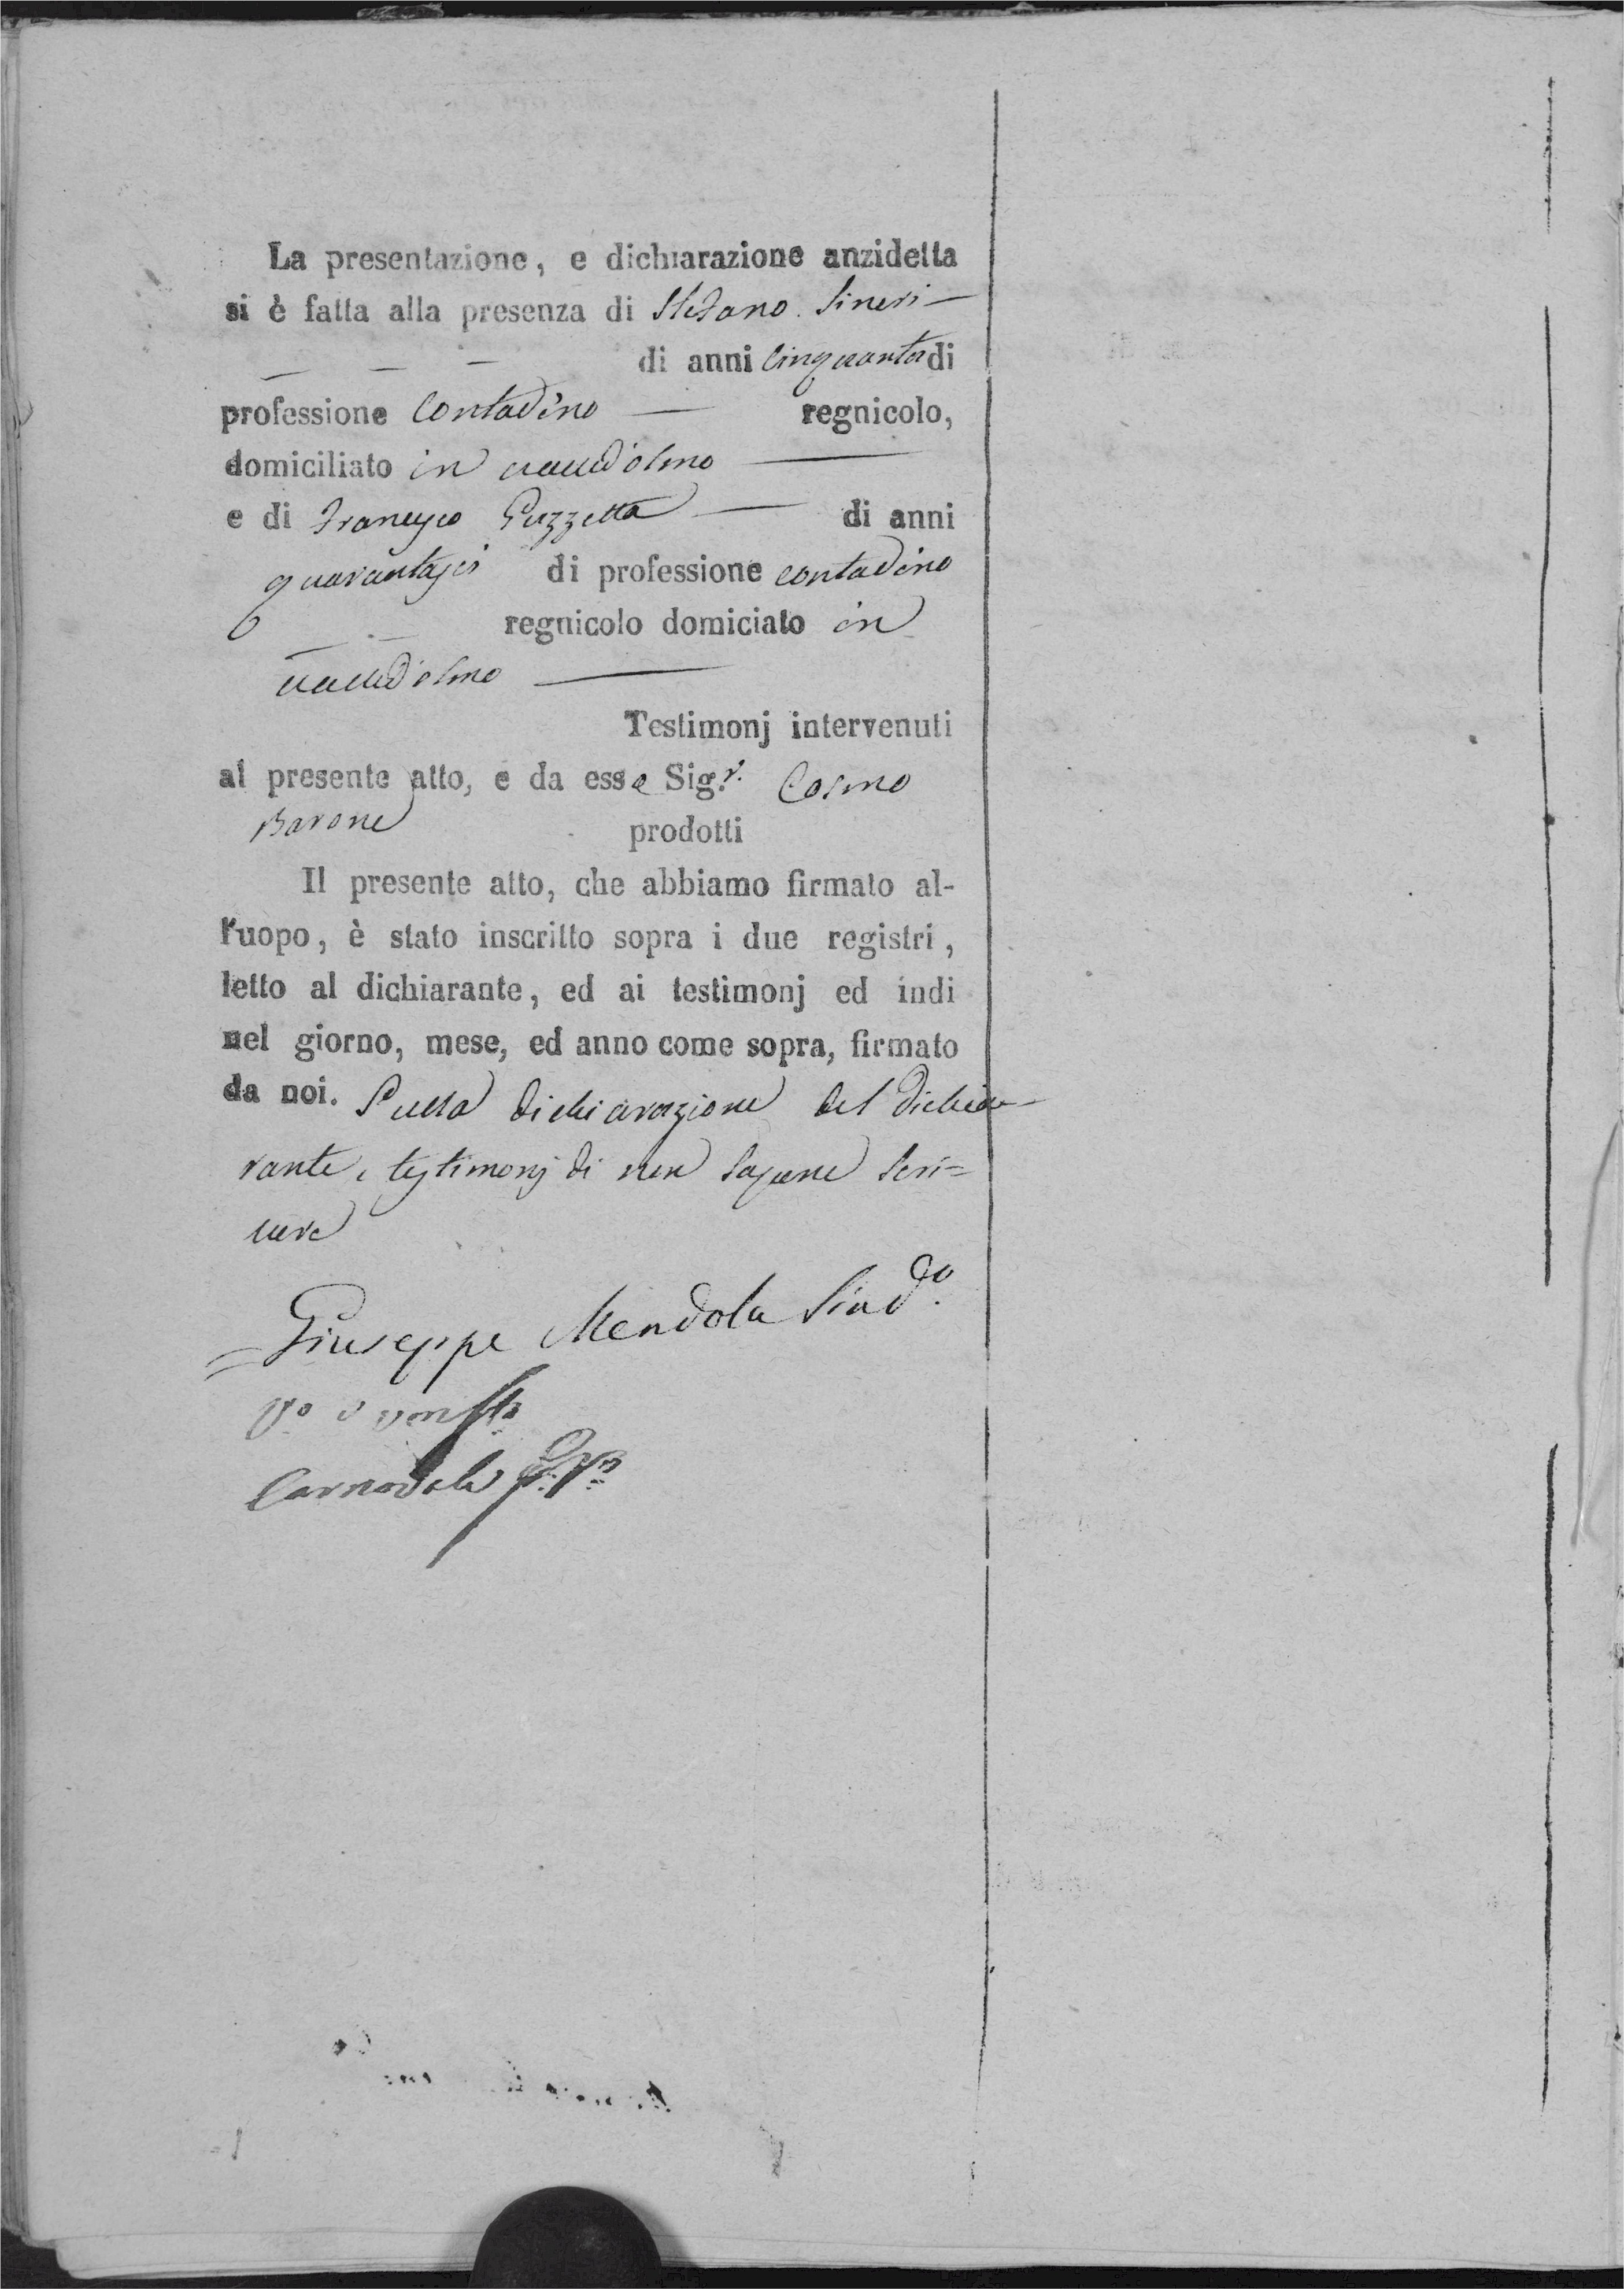 La presentazione, e dichiarazione anzidetta
si è fatta alla presenza di Stefano Sineri —
— — — di anni Cinquanta di
professione Contadino — regnicolo,
domiciliato in Valledolmo —
e di Francesco Guzzetta — di anni
quarantasei di professione contadino
— — regnicolo domiciato in
Valledolmo —
Testimonj intervenuti
al presente atto, e da esso Sig.r Cosmo
Barone prodotti
Il presente atto, che abbiamo firmato al-
l'uopo, è stato inscritto sopra i due registri,
letto al dichiarante, ed ai testimonj ed indi
nel giorno, mese, ed anno come sopra, firmato
da noi. Sulla dichiarazione del dichia-
rante e testimonj di non sapere scri=
vere
= Giuseppe Mendola Sind.o
V.o